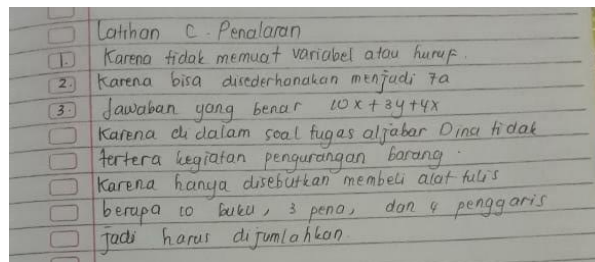 Latihan C. Penalaran
1. Karena tidak memuat variabel atau huruf.
2. Karena bisa disederhanakan menjadi 7a
3. Jawaban yang benar 10x + 3y + 4x
Karena di dalam soal tugas aljabar Dina tidak
tertera kegiatan pengurangan barang.
Karena hanya disebutkan membeli alat tulis
berupa 10 buku, 3 pena, dan 4 penggaris
jadi harus dijumlahkan.